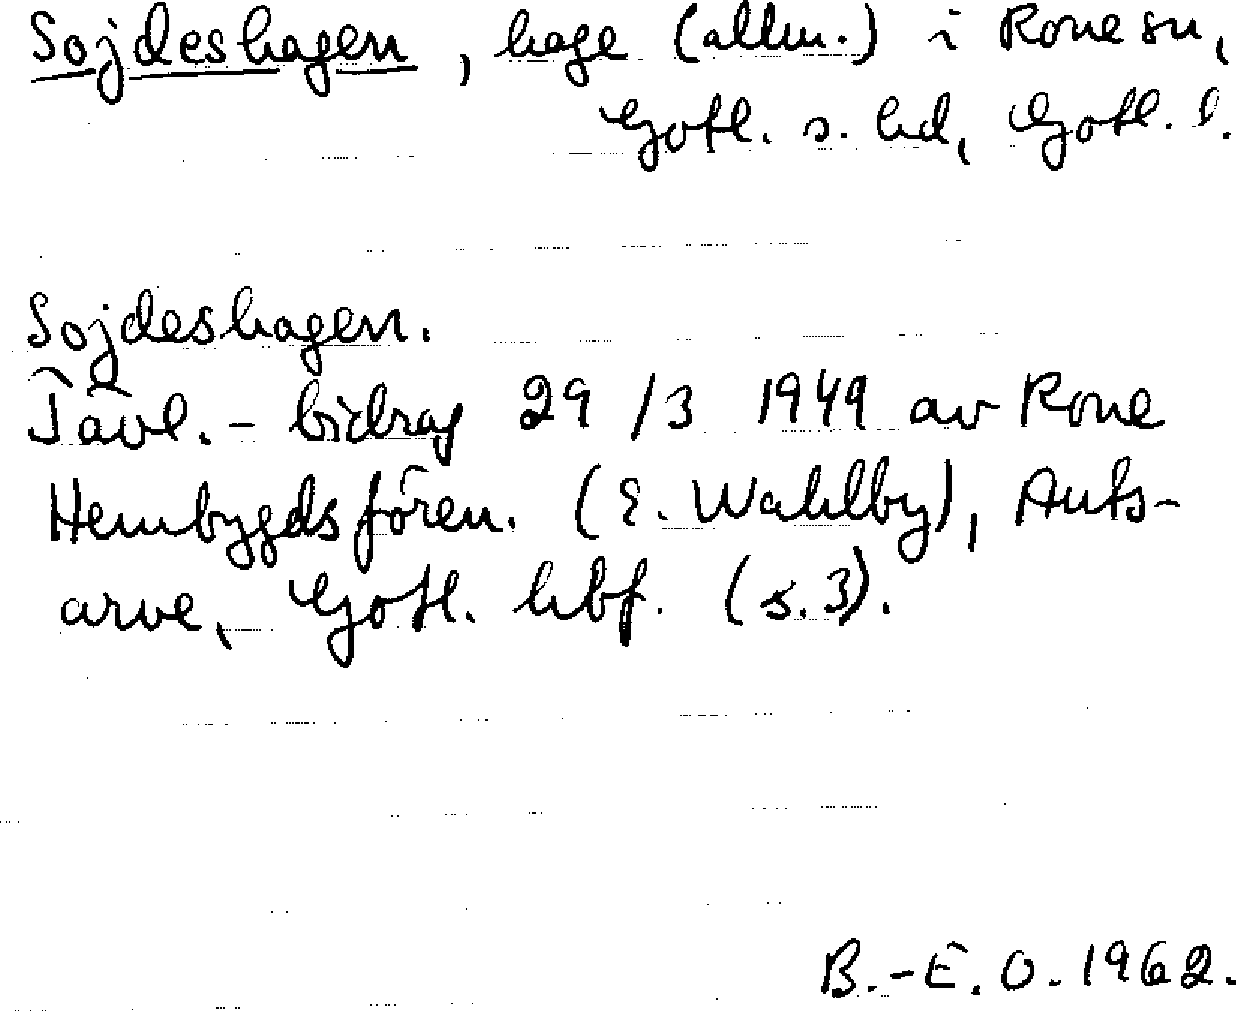 Sojdeshagen, hage (allm.) i Rone sn,
Gotl. s. hd, Gotl. l.
Sojdeshagen.
Tävl.-bidrag 29/3 1949 av Rone
Hembygdsfören. (E. Wahlby), Auts-
arve, Gotl. hbf. (s. 3).
B.-E. O. 1962.